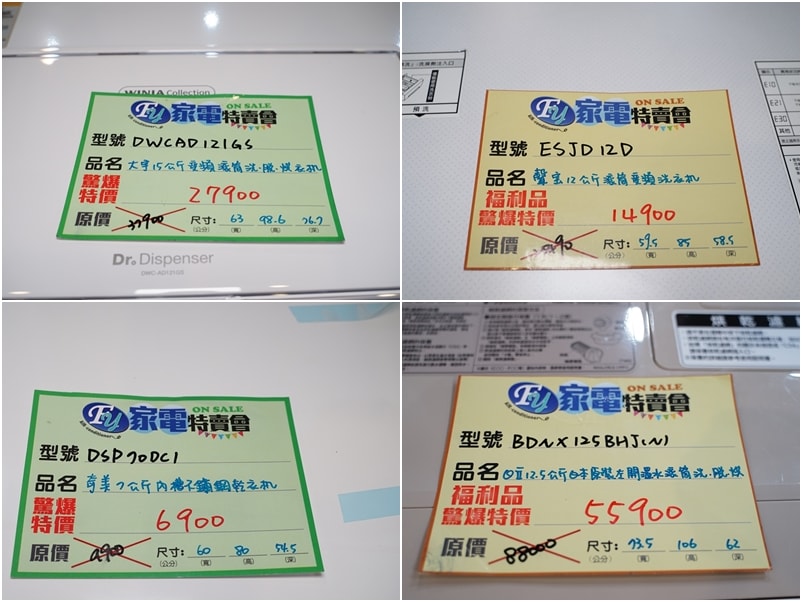 WINIA Collection
Fy 家電特賣會 ON SALE
型號 DWCAD121GS
品名 大宇15公斤變頻滾筒洗.脫.烘衣机
驚爆特價 27900
原價 尺寸:(公分) 63(寬) 98.6(高) 76.7(深)
Dr. Dispenser
DWC-AD121GS
預洗
E10
E21
E30
其他
Fy 家電特賣會 ON SALE
型號 ESJD12D
品名 聲宝12公斤滾筒變頻洗衣机
福利品
驚爆特價 14900
原價 尺寸:(公分) 59.5(寬) 85(高) 58.5(深)
Fy 家電特賣會 ON SALE
型號 DSP70DC1
品名 奇美7公斤內槽不鏽鋼乾衣机
驚爆特價 6900
原價 9900 尺寸:(公分) 60(寬) 80(高) 54.5(深)
烘乾濾
Fy 家電特賣會 ON SALE
型號 BDNX125BHJ(N)
品名 日立12.5公斤日本原裝左開溫水滾筒洗.脫.烘
福利品
驚爆特價 55900
原價 88000 尺寸:(公分) 73.5(寬) 106(高) 62(深)